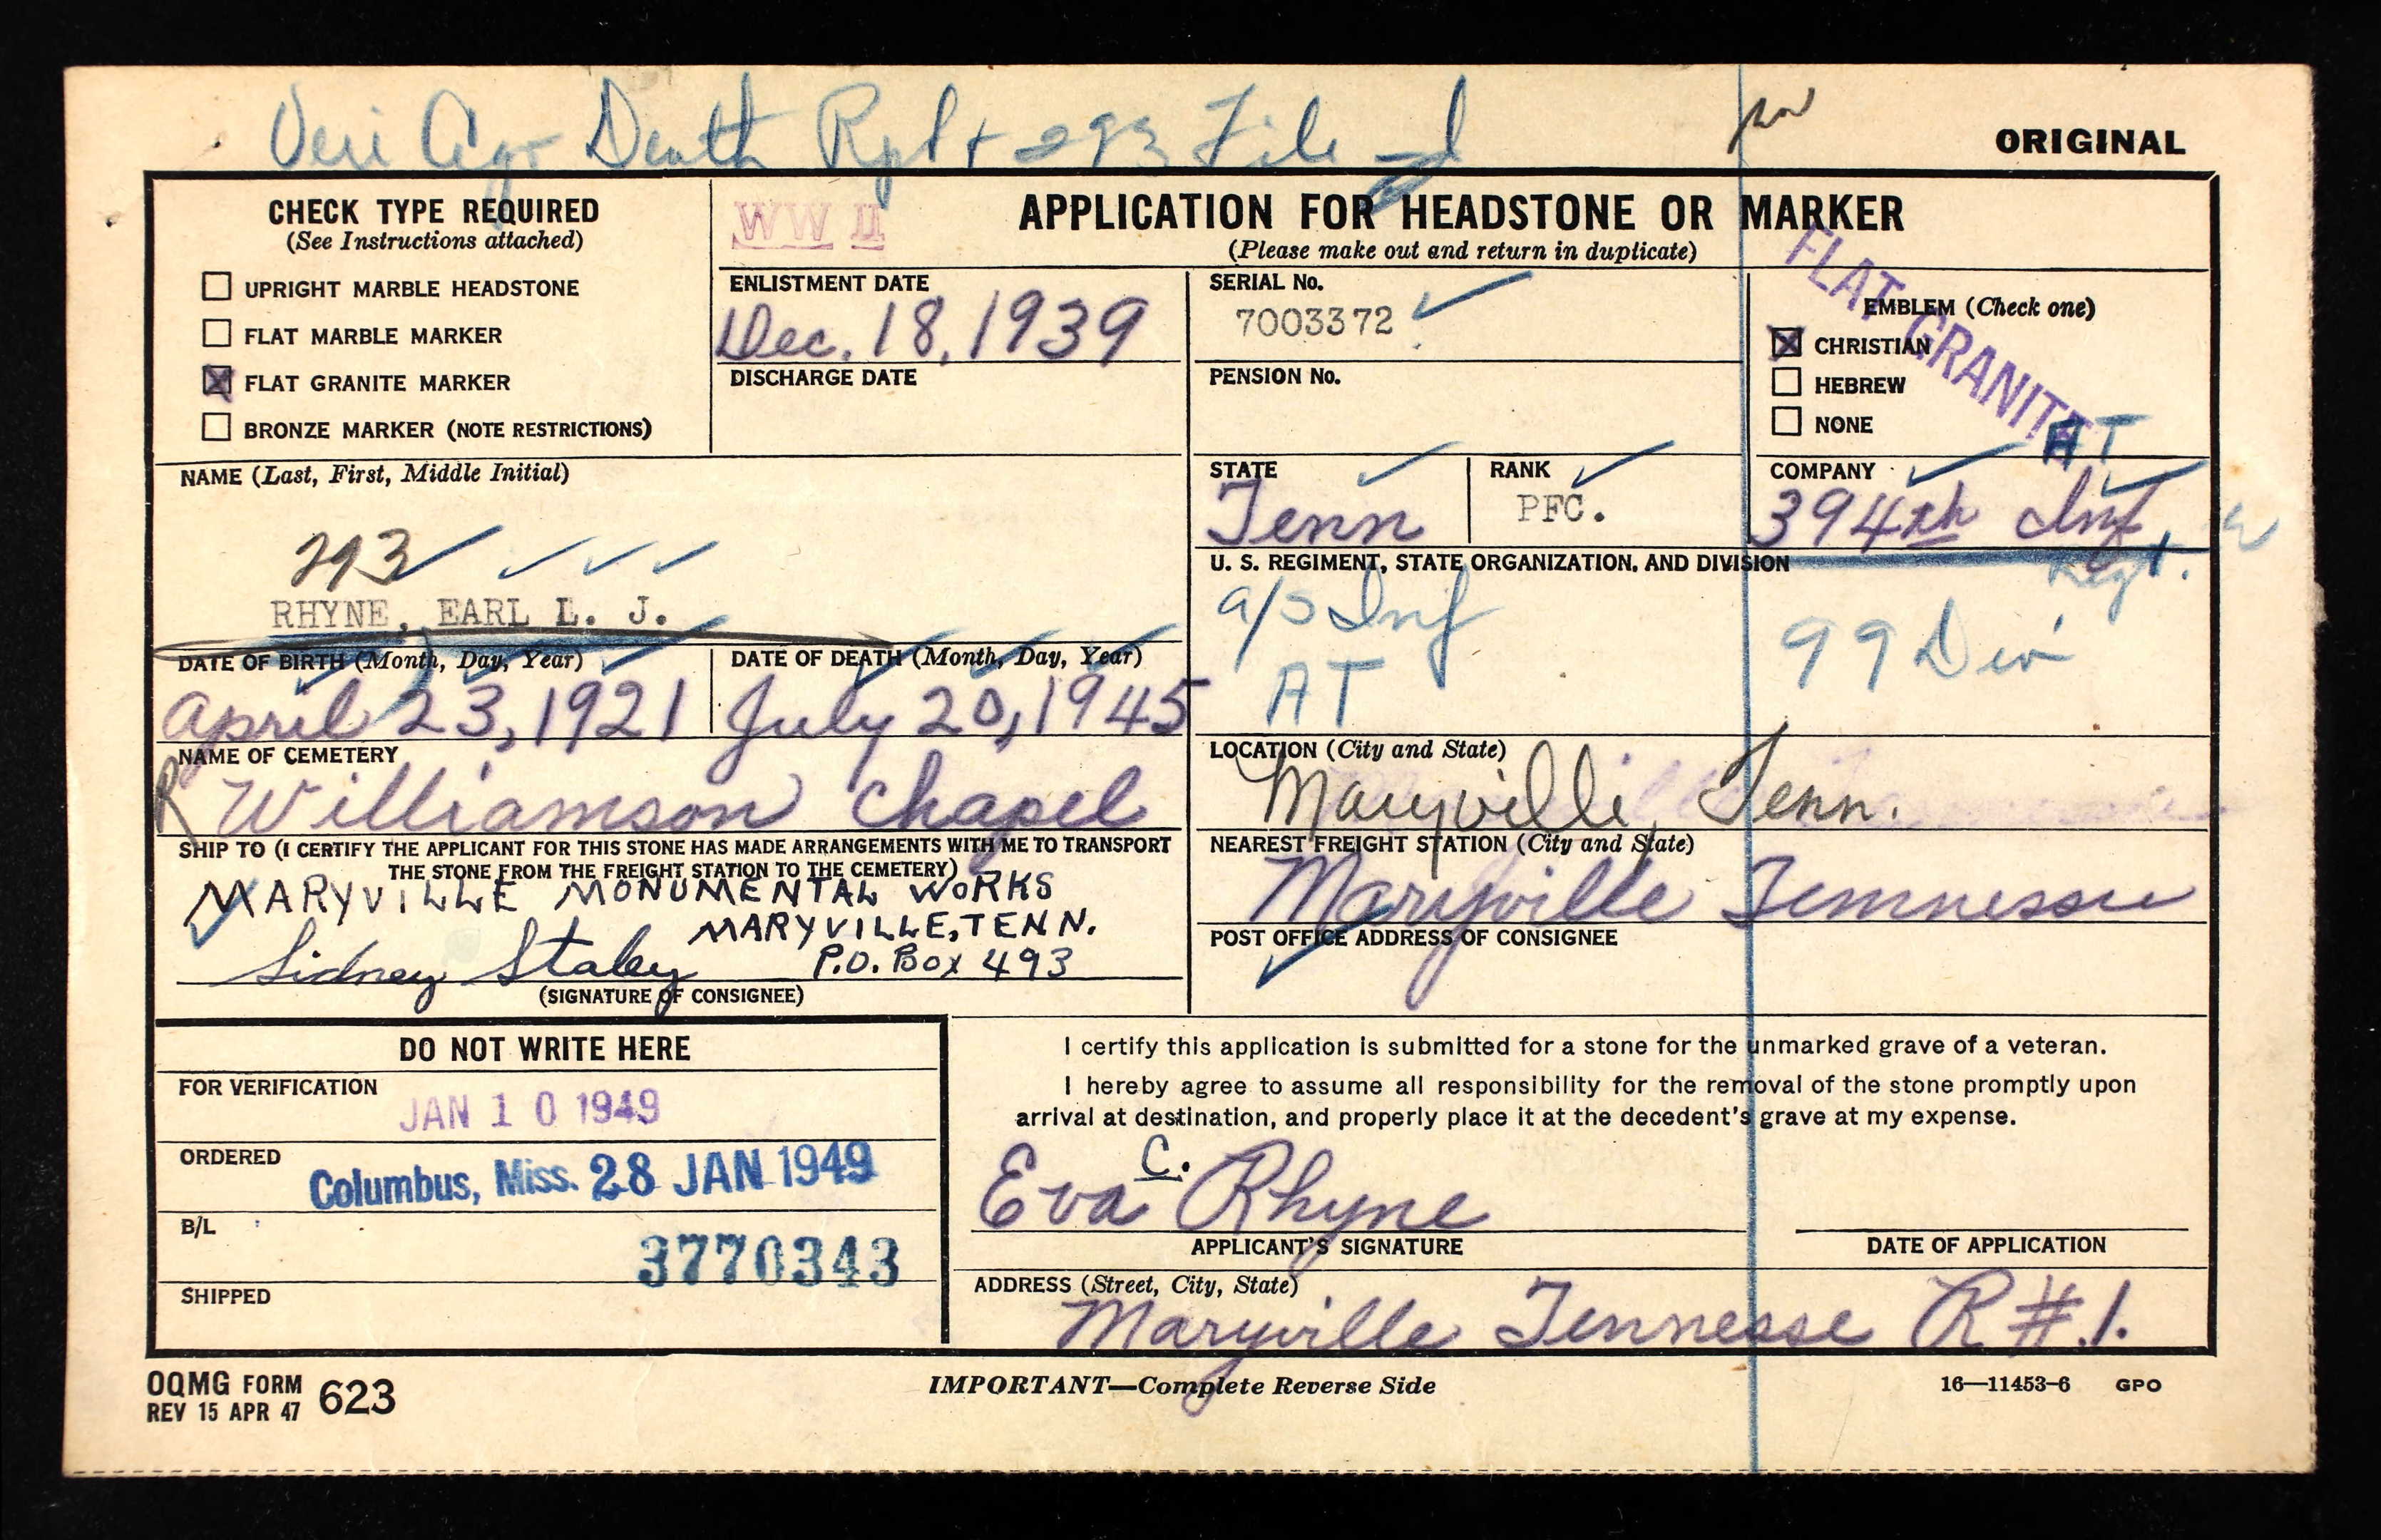 Veri Ago Death Rpt + 293 File
ORIGINAL
CHECK TYPE REQUIRED
(See Instructions attached)
UPRIGHT MARBLE HEADSTONE
FLAT MARBLE MARKER
FLAT GRANITE MARKER
BRONZE MARKER (NOTE RESTRICTIONS)
WW II
APPLICATION FOR HEADSTONE OR MARKER
(Please make out and return in duplicate)
ENLISTMENT DATE
Dec. 18, 1939
DISCHARGE DATE
SERIAL No.
7003372
PENSION No.
EMBLEM (Check one)
CHRISTIAN
HEBREW
NONE
FLAT GRANITE
NAME (Last, First, Middle Initial)
293
RHYNE, EARL L. J.
STATE
Tenn
RANK
PFC.
COMPANY
AT
394th Inf
Regt.
U. S. REGIMENT, STATE ORGANIZATION, AND DIVISION
a/s Inf
AT
99 Div
DATE OF BIRTH (Month, Day, Year)
April 23, 1921
DATE OF DEATH (Month, Day, Year)
July 20, 1945
NAME OF CEMETERY
R Williamson Chapel
LOCATION (City and State)
Maryville, Tenn.
SHIP TO (I CERTIFY THE APPLICANT FOR THIS STONE HAS MADE ARRANGEMENTS WITH ME TO TRANSPORT
THE STONE FROM THE FREIGHT STATION TO THE CEMETERY)
MARYVILLE MONUMENTAL WORKS
MARYVILLE, TENN.
Sidney Staley P.O. Box 493
(SIGNATURE OF CONSIGNEE)
NEAREST FREIGHT STATION (City and State)
Maryville Tennessee
POST OFFICE ADDRESS OF CONSIGNEE
DO NOT WRITE HERE
FOR VERIFICATION
JAN 10 1949
ORDERED
Columbus, Miss. 28 JAN 1949
B/L
3770343
SHIPPED
I certify this application is submitted for a stone for the unmarked grave of a veteran.
I hereby agree to assume all responsibility for the removal of the stone promptly upon
arrival at destination, and properly place it at the decedent's grave at my expense.
Eva C. Rhyne
APPLICANT'S SIGNATURE
DATE OF APPLICATION
ADDRESS (Street, City, State)
Maryville Tennesse R #.1.
OQMG FORM 623
REV 15 APR 47
IMPORTANT—Complete Reverse Side
16—11453-6 GPO